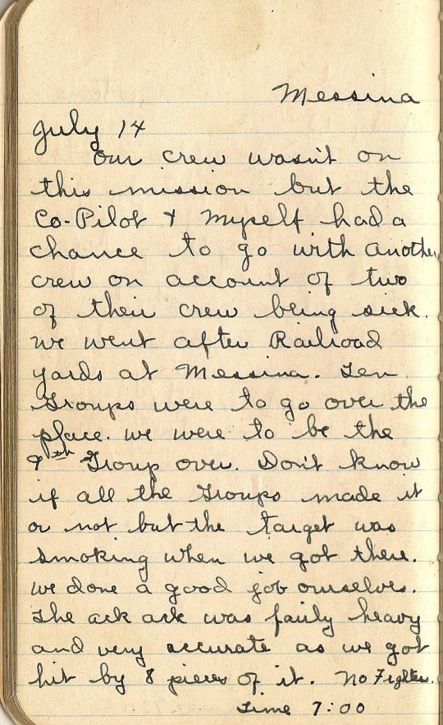 Messina
July 14
Our crew wasn't on
this mission but the
Co-Pilot & myself had a
chance to go with another
crew on account of two
of their crew being sick.
We went after Railroad
yards at Messina. Ten
Groups were to go over the
place. We were to be the
9th Group over. Don't know
if all the Groups made it
or not but the target was
smoking when we got there.
We done a good job ourselves.
The ack ack was faily heavy
and very accurate as we got
hit by 8 pieces of it. No Fighters.
Time 7:00